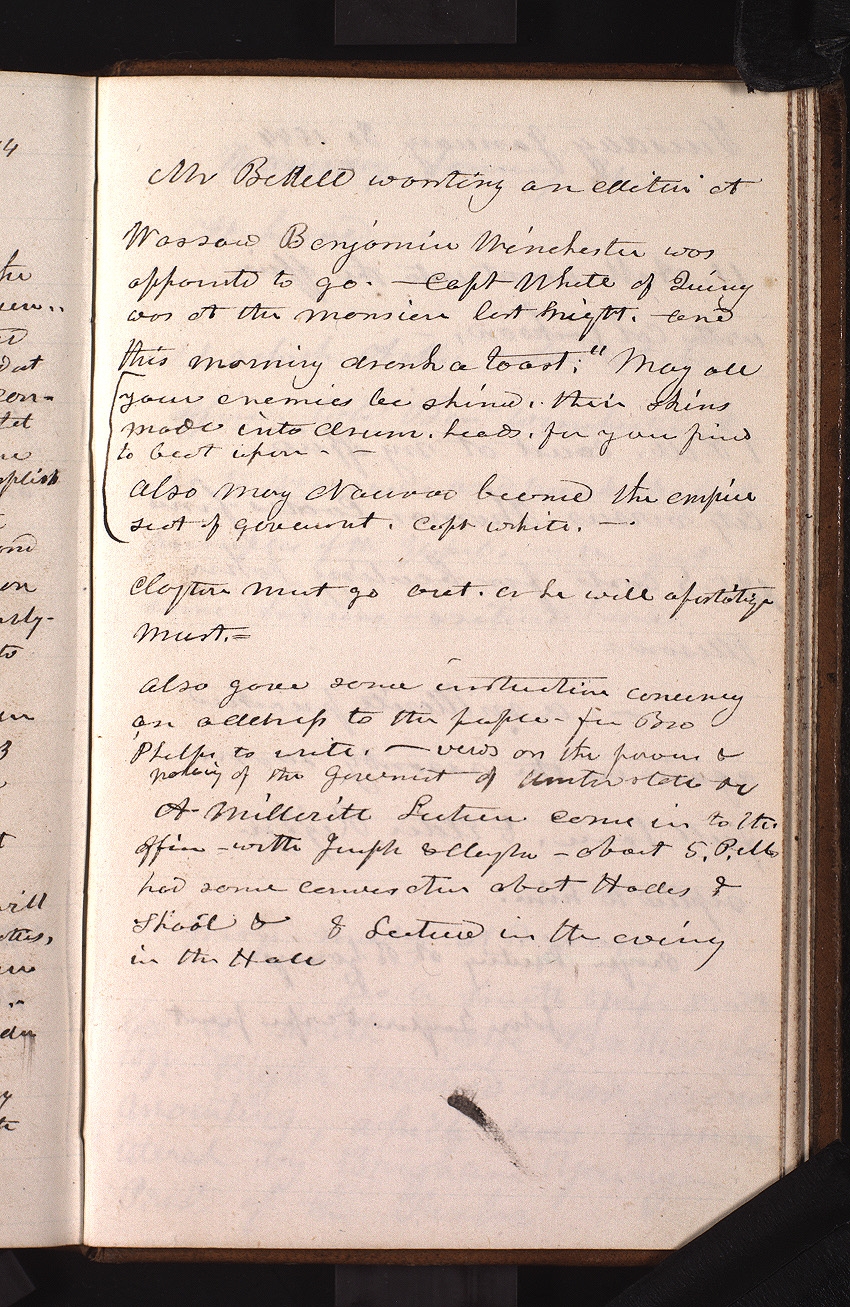 Mr Bettell wanting an editer at
Warsaw Benjamin Winchester was
appointd to go. — Capt White of Quincy
was at the mansion last knight. and
this morning drank a toast. " May all
your enemies be skind. their skins
made into drum. heads. for your frinds
to beat upon. —
also may Nauvoo become the empire
seat of govermnt. Capt white. —.
Clayton must go out. or he will apostatize
must.=
also gave some instruction concerning
an address to the paper - for Bro
Phelps to write. — views on the powers &
policy of the Govermnt of United states &c
A Millerite Lecturer came in to the
office - with Joseph & Clayton - about 5. P.M
had some conversation about Hades &
Shaole &c & Lectured in the evening
in the Hall